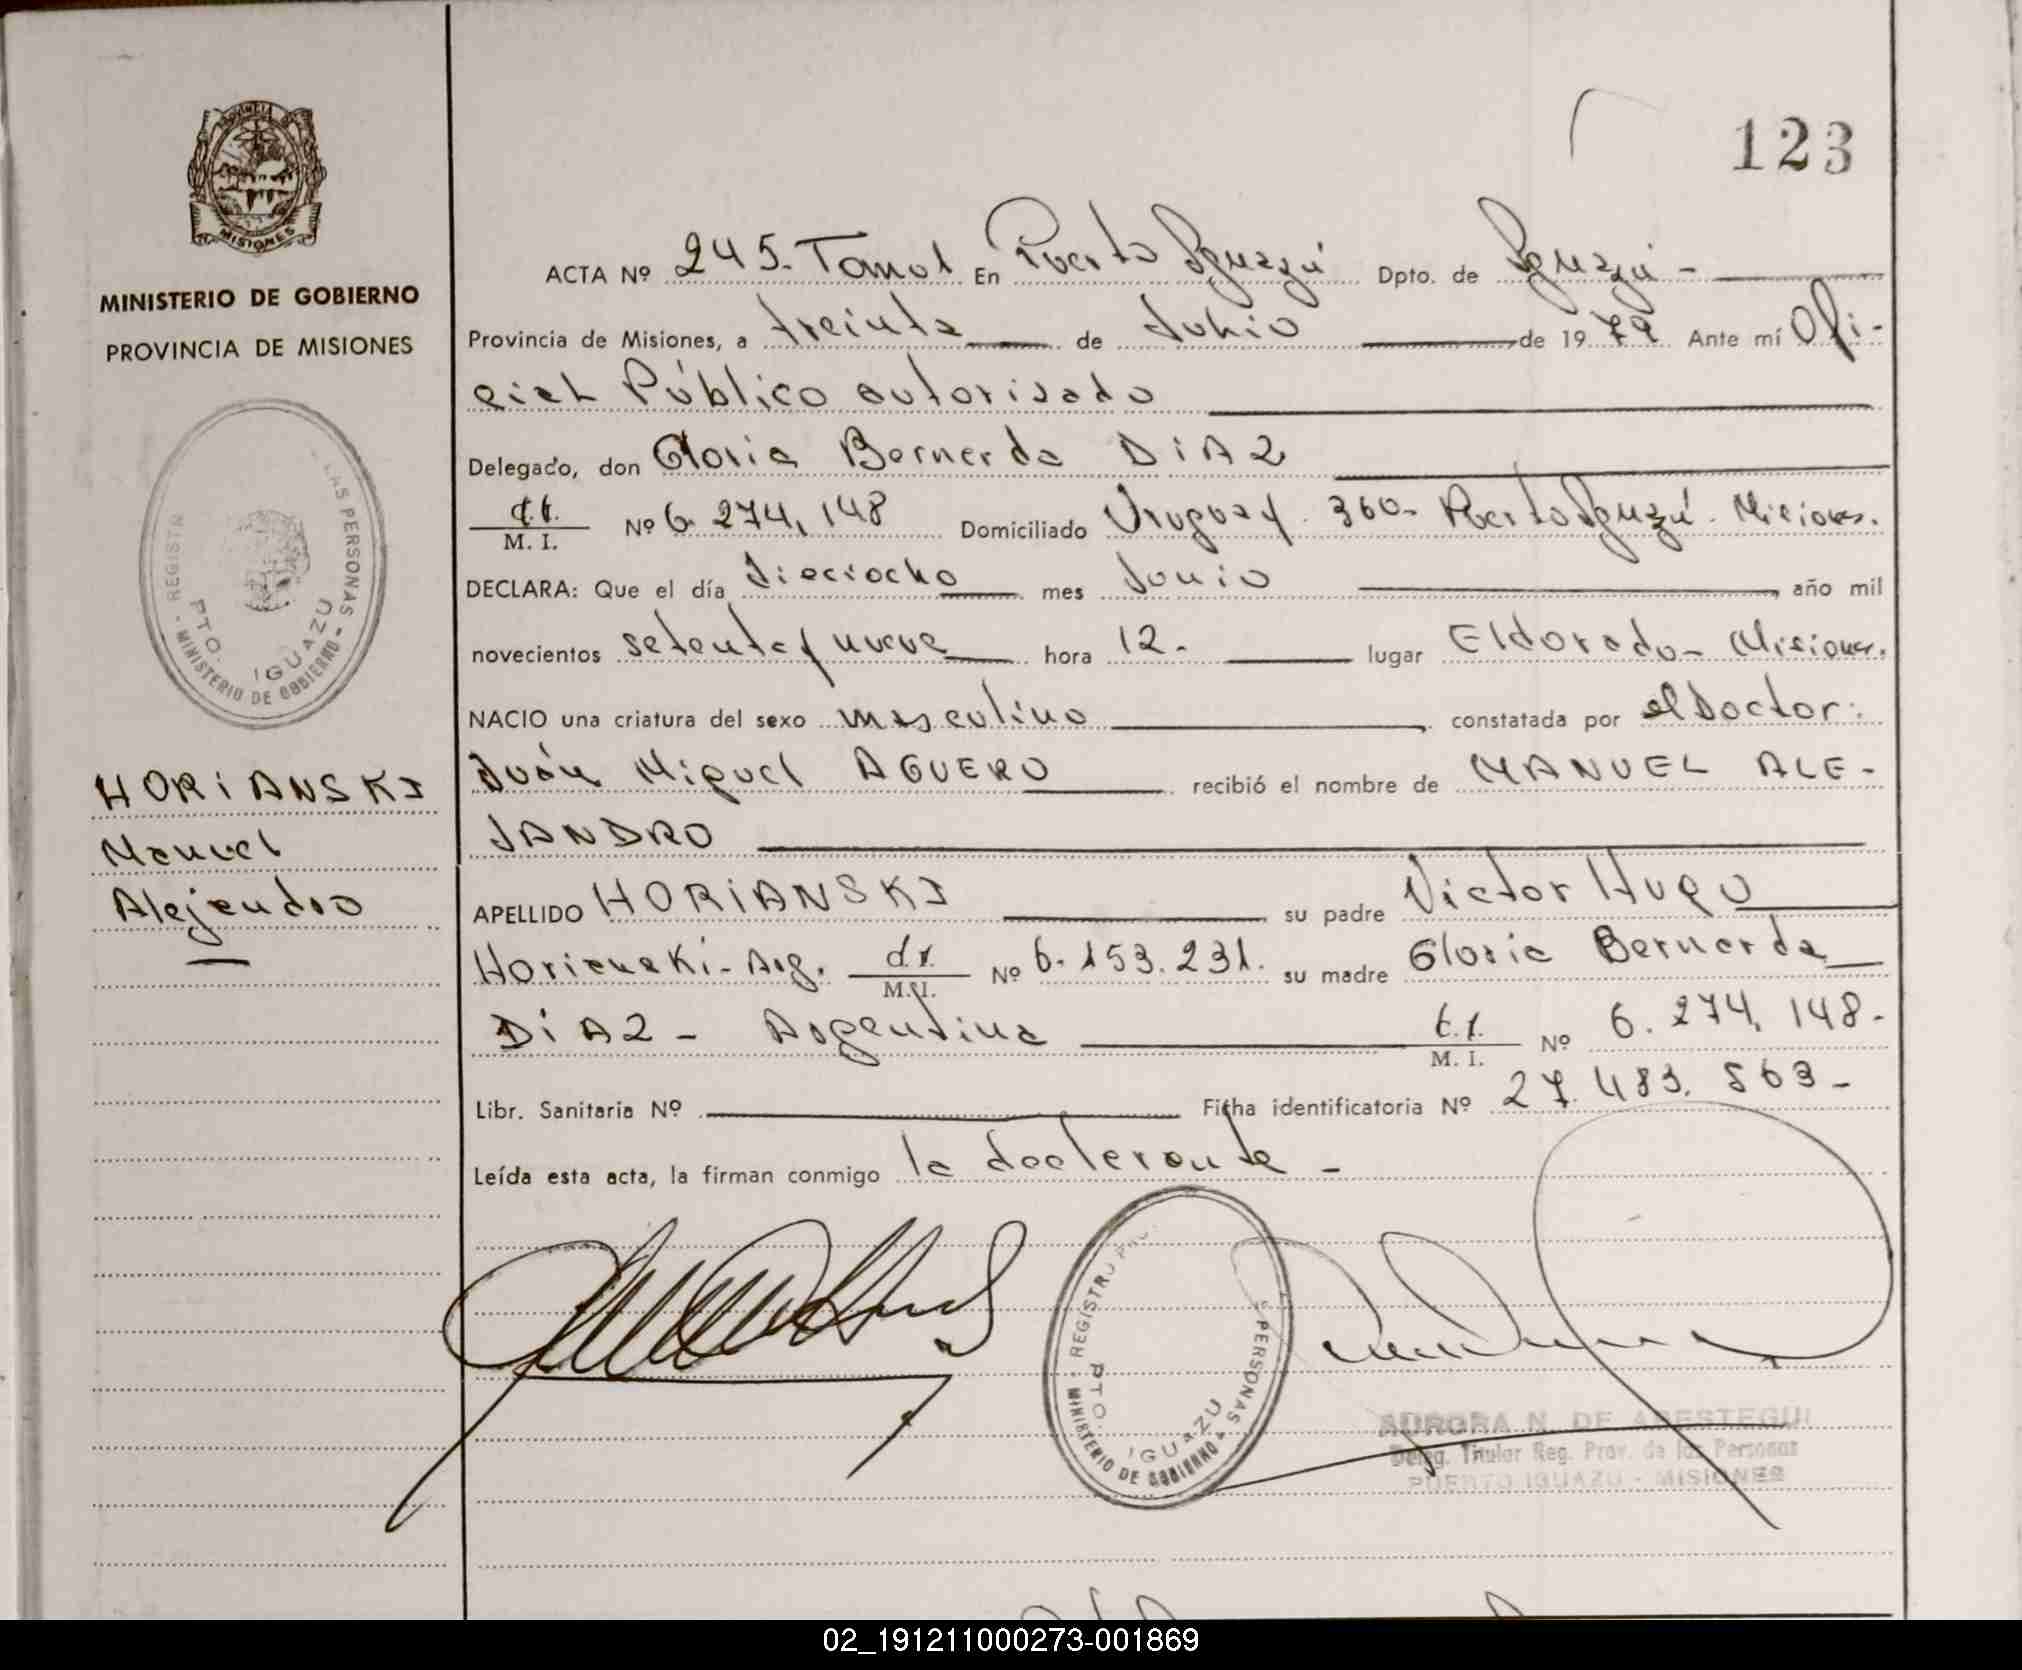 123
PROVINCIA D
MISIONES
MINISTERIO DE GOBIERNO
PROVINCIA DE MISIONES
REGISTR LAS PERSONAS
PTO. IGUAZU
- MINISTERIO DE GOBIERNO -
HORIANSKI
Manuel
Alejandro
ACTA Nº 245. Tomo 1 En Puerto Iguazú Dpto. de Iguazú -
Provincia de Misiones, a treinta de Julio de 1979 Ante mí Ofi-
cial Público autorizado
Delegado, don Gloria Bernarda DiAZ
M. I. Nº 6.274.148 Domiciliado Uruguay 360- Puerto Iguazú. Misiones.
DECLARA: Que el día dieciocho mes Junio año mil
novecientos setenta y nueve hora 12.- lugar Eldorado- Misiones.
NACIO una criatura del sexo masculino constatada por el Doctor:
Juán Miguel AGUERO recibió el nombre de MANUEL ALE-
JANDRO
APELLIDO HORiANSKI su padre Victor Hugo
Horianski- Arg. M.I. Nº 6.153.231. su madre Gloria Bernarda
DiAZ - Argentina M. I. Nº 6.274.148.-
Libr. Sanitaria Nº Ficha identificatoria Nº 27.483.563-
Leída esta acta, la firman conmigo la declarante -
REGISTRO S PERSONAS
PTO. IGUAZU
MINISTERIO DE GOBIERNO
AURORA N. DE ARESTEGUI
Deleg. Titular Reg. Prov. de las Personas
PUERTO IGUAZU - MISIONES
02_191211000273-001869